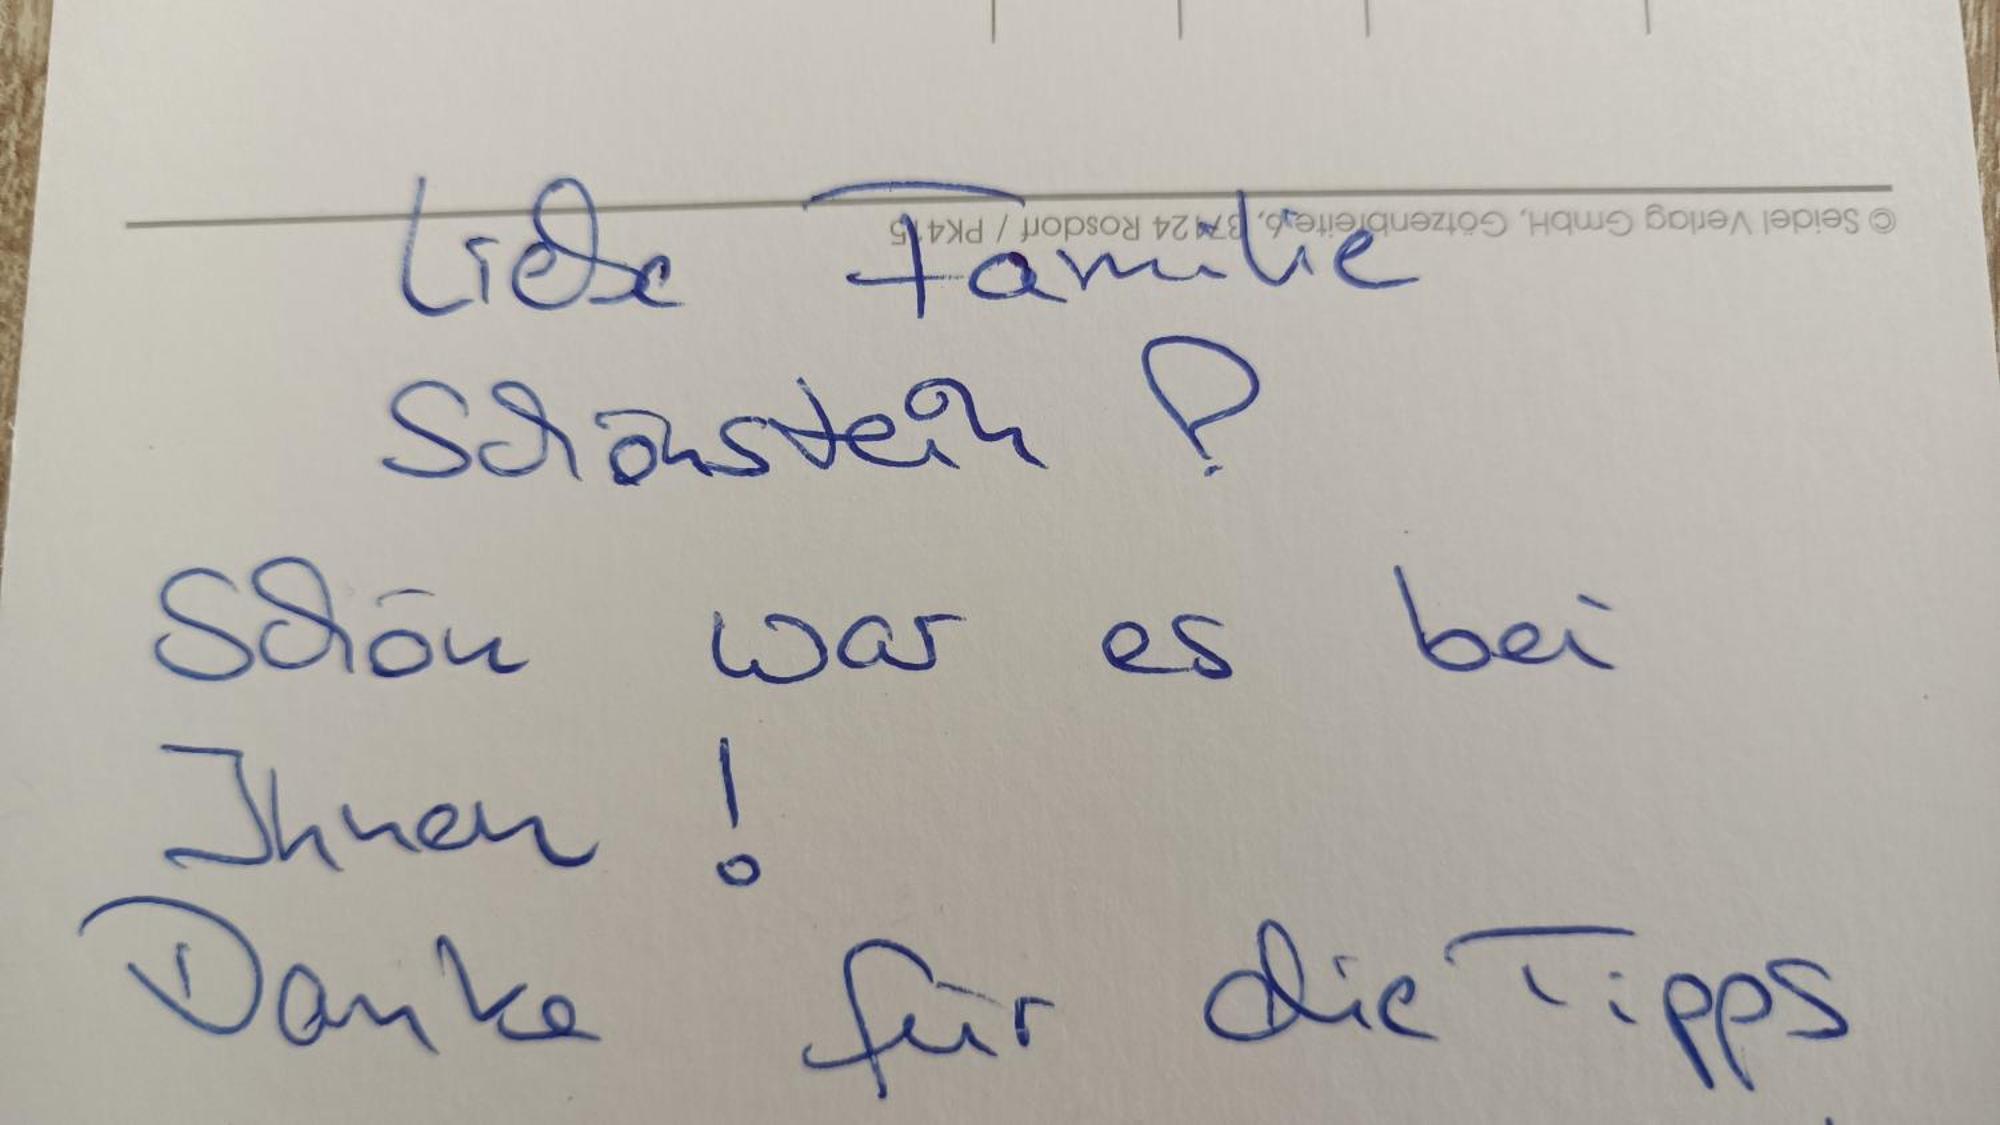 © Seidel Verlag GmbH, Götzenbreite 6, 37124 Rosdorf / PK415
Liebe Familie
Schönstein !
Schön war es bei
Ihnen !
Danke für die Tipps